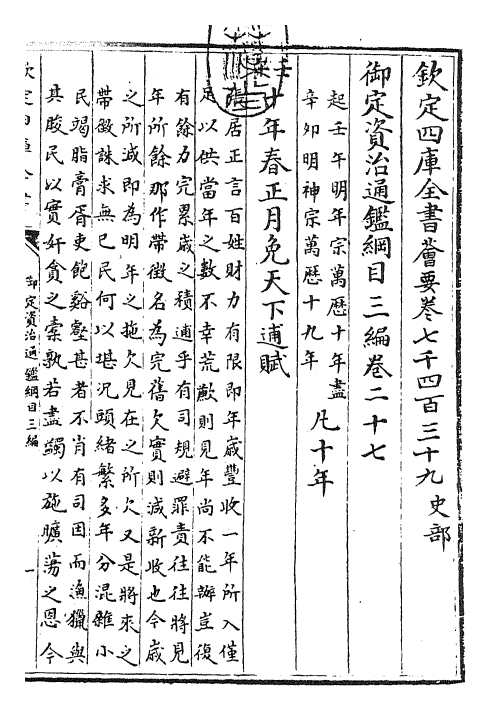 欽定四庫全書薈要卷七千四百三十九 史部
御定資治通鑑綱目三編卷二十七
起壬午明神宗萬歷十年盡
辛卯明神宗萬歷十九年
凡十年
壬午十年春正月免天下逋賦
張居正言百姓財力有限即年歲豐收一年所入僅
足以供當年之數不幸荒歉則見年尚不能辦豈復
有餘力完累歲之積逋乎有司規避罪責往往將見
年所餘那作帶徵名為完舊欠實則減新收也今歲
之所減即為明年之拖欠見在之所欠又是將來之
帶徵誅求無已民何以堪况頭緒繁多年分混雜小
民竭脂膏胥吏飽谿壑甚者不肖有司因而漁獵與
其朘民以實奸貪之橐孰若盡蠲以施曠蕩之恩今
欽定四庫全書
御定資治通鑑綱目三編
一